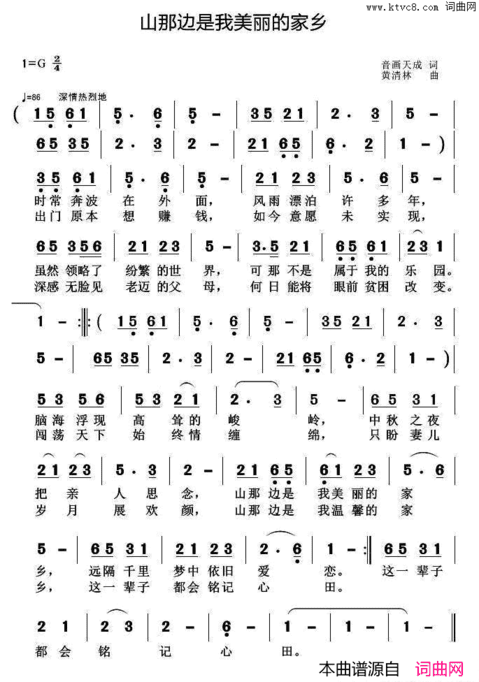 www.ktvc8.com 词曲网
山那边是我美丽的家乡
1=G 2/4
音画天成 词
黄清林 曲
♩=86 深情热烈地
( 15 61 | 5 · 6 | 5 - | 35 21 | 5 - |
65 35 | 2 · 3 | 2 - | 21 65 | 6 · 2 | 1 - )
35 61 | 5 · 6 | 5 - | 35 21 | 6 2 | 5 - |
时常奔波 在 外 面， 风雨漂泊 许 多 年，
出门原本 想 赚 钱， 如今意愿 未 实 现，
65 356 | 21 23 | 5 - | 3·5 21 | 65 61 | 2 3 |
虽然领略了 纷繁的世 界， 可那不是 属于我的 乐 园。
深感无脸见 老迈的父 母， 何日能将 眼前贫困 改 变。
1 - :||: ( 15 61 | 5 · 6 | 5 - | 35 21 | 2 · 3 |
5 - | 65 35 | 2 · 3 | 2 - | 21 65 | 6 · 2 | 1 - )
53 56 | 5 3 | 2 21 | 2 · 3 | 5 - | 65 31 |
脑海浮现 高 耸 的 峻 岭， 中秋之夜
闯荡天下 始 终 情 缠 绵， 只盼妻儿
21 23 | 5 · 3 | 2 - | 21 65 | 61 23 | 5 · 6 |
把 亲 人 思 念， 山那边是 我美丽的 家
岁 月 展 欢 颜， 山那边是 我温馨的 家
5 - | 65 31 | 65 23 | 2 · 6 | 1 - :|| 65 31 |
乡， 远隔千里 梦中依旧 爱 恋。 这一辈子
乡， 这一辈子 都会铭记 心 田。
2 1 | 6 2 | 2 - | 6 · 2 | 1 - | 1 - | 1 - ||
都 会 铭 记 心 田。
本曲谱源自 词曲网